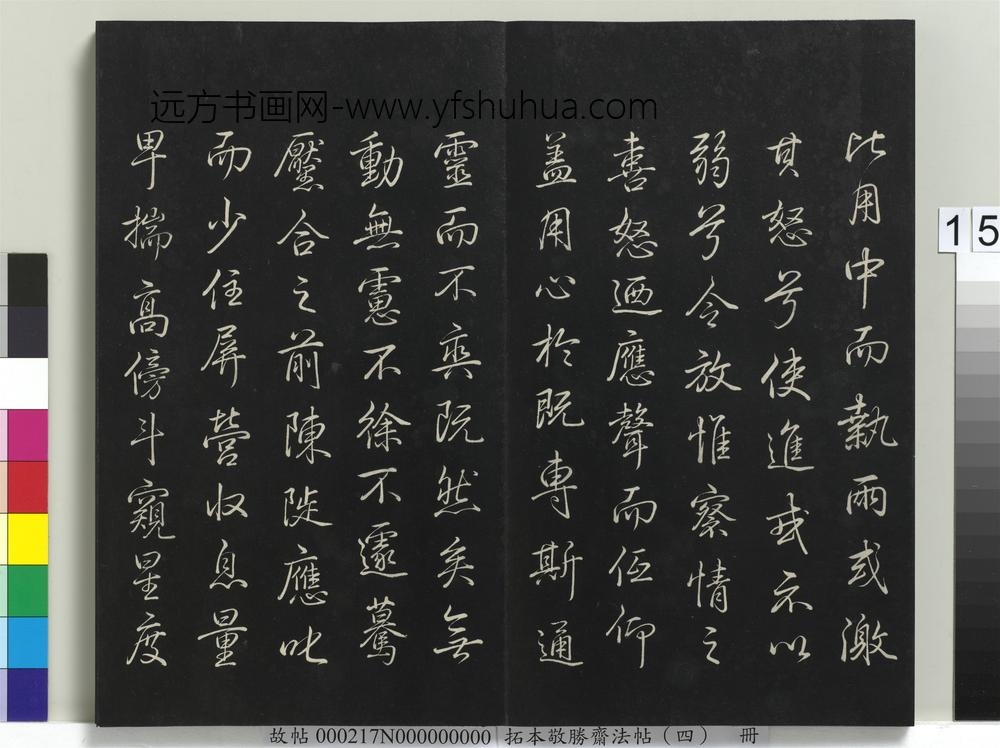 远方书画网-www.yfshuhua.com
比用中而執兩或激
其怒兮使進或示以
弱兮令放惟察情之
喜怒迺應聲而低仰
盖用心於既專斯通
靈而不爽既然矣無
動無慮不徐不遽驀
壓合之前陳陡應叱
而少住屏營收息量
卑揣高傍斗窺星度
15
故帖 000217N000000000 拓本敬勝齋法帖（四） 冊